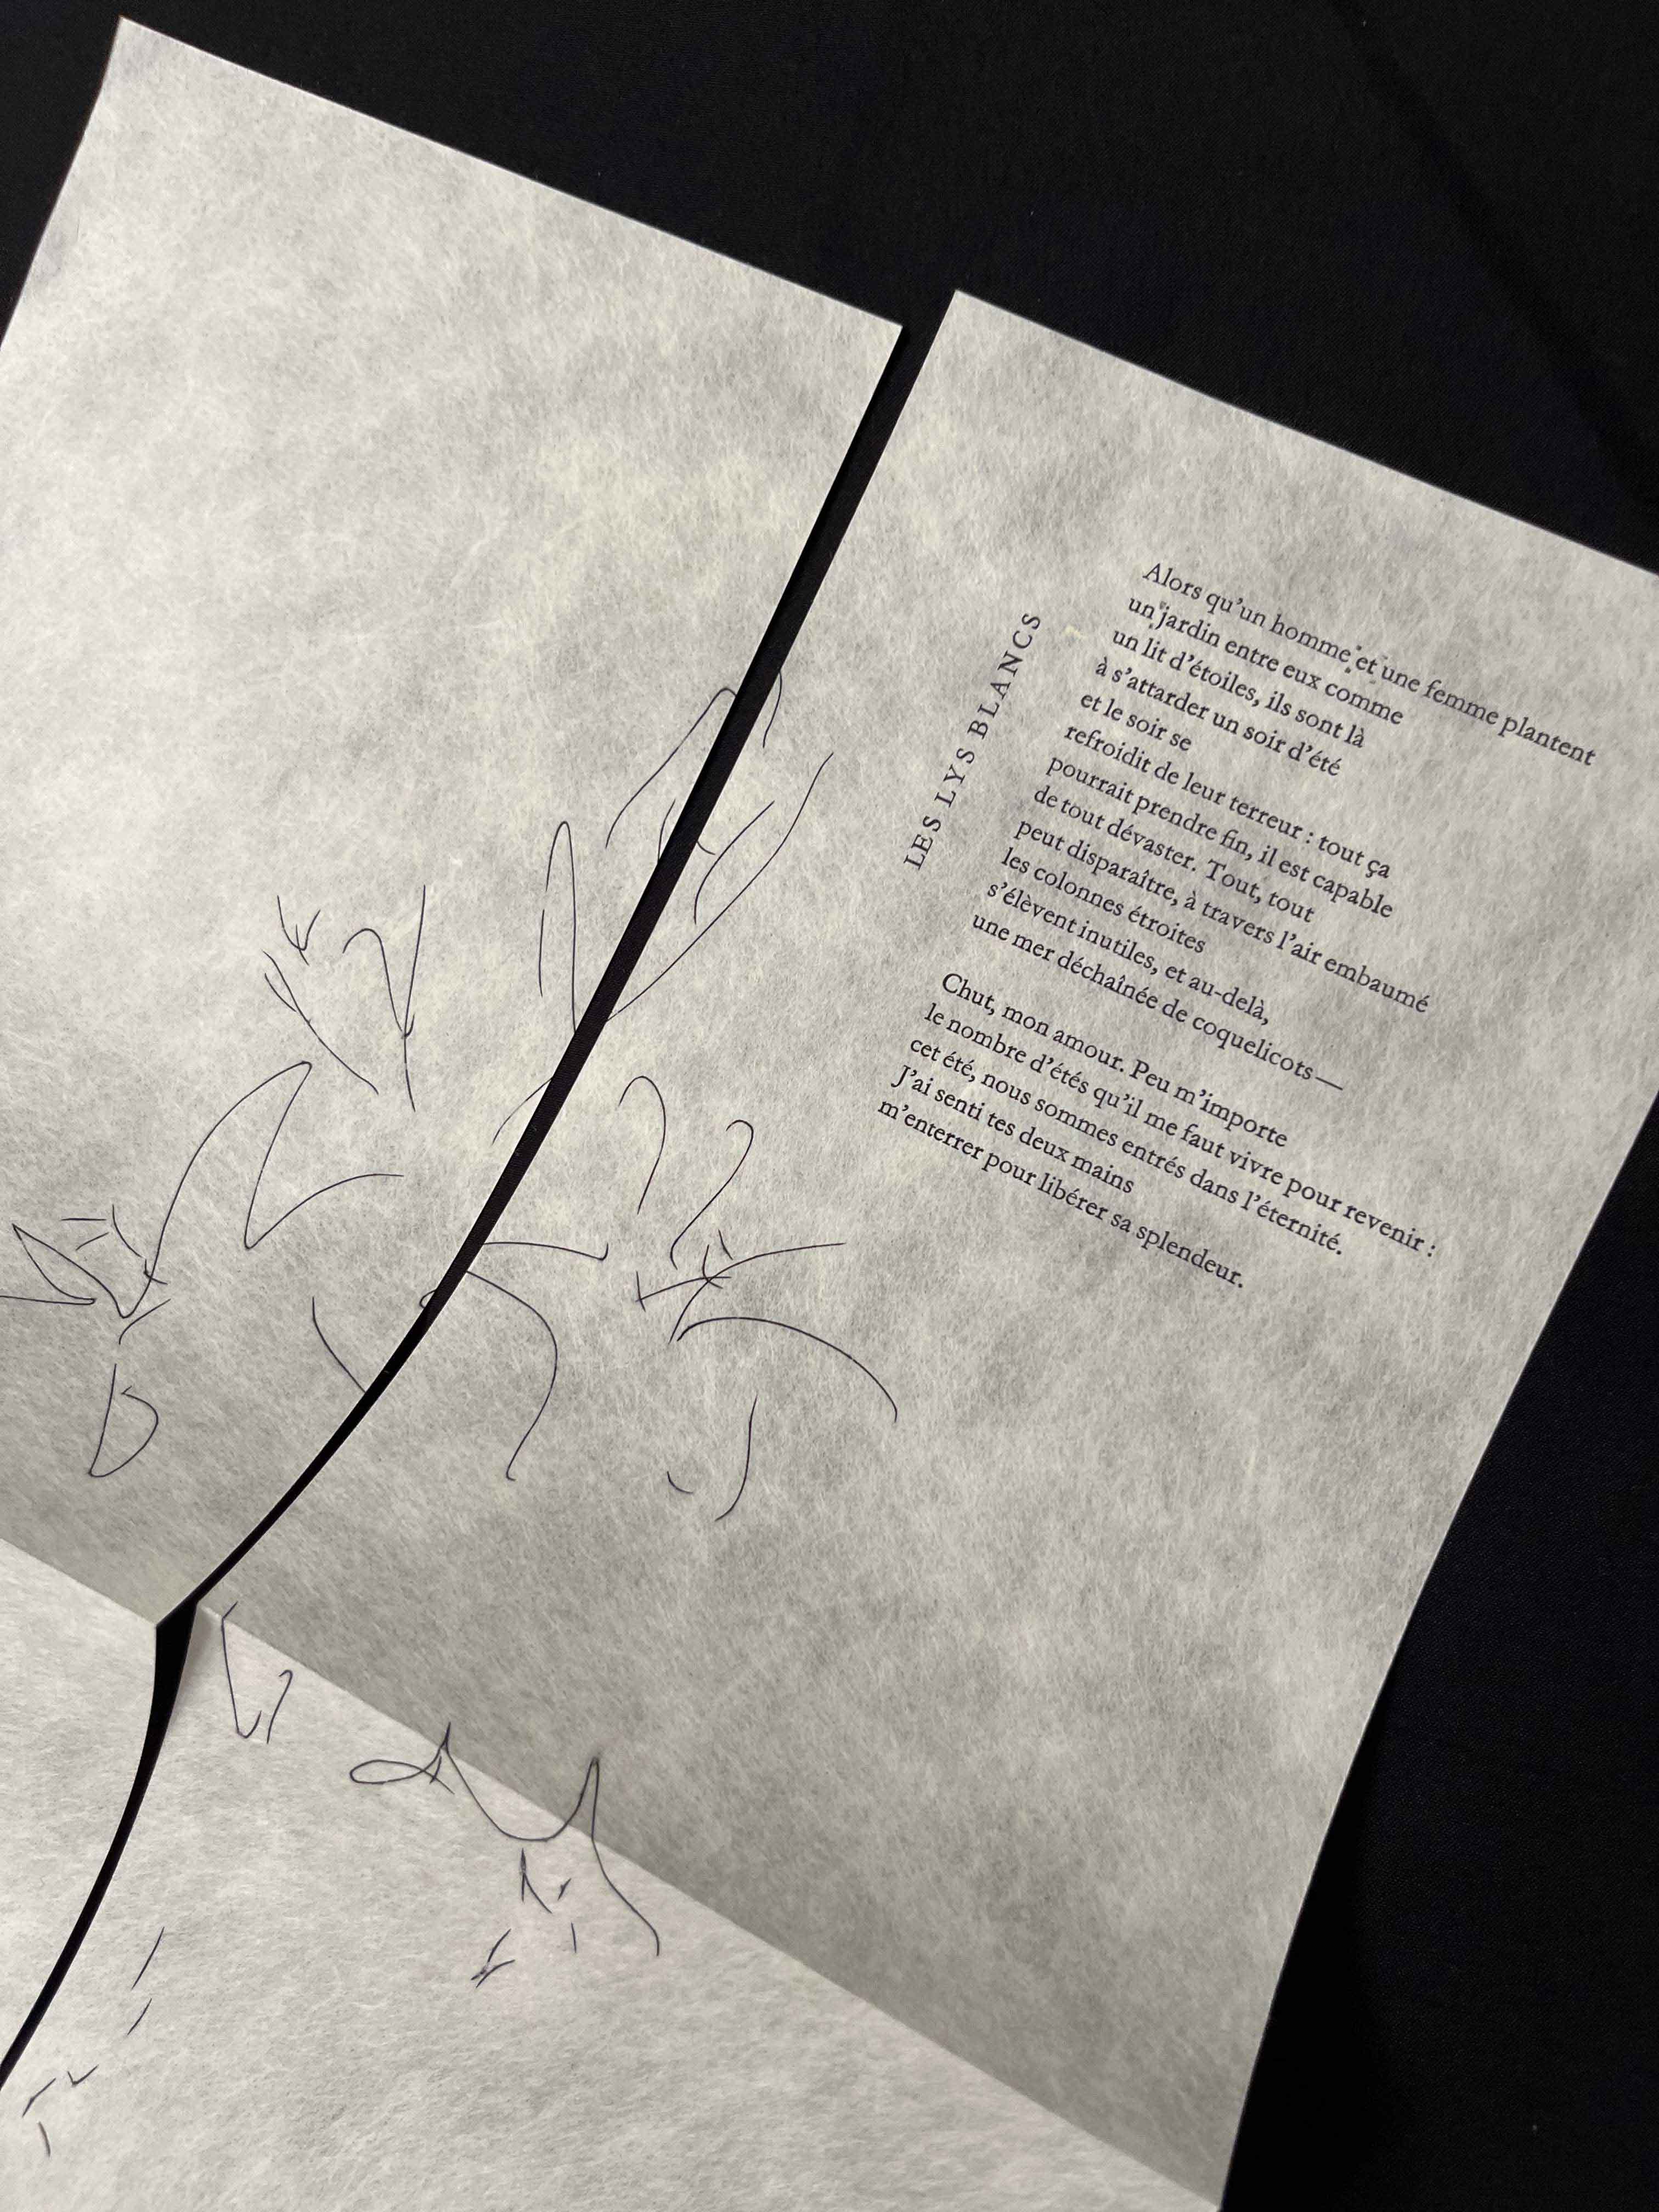 LES LYS BLANCS
Alors qu’un homme et une femme plantent
un jardin entre eux comme
un lit d’étoiles, ils sont là
à s’attarder un soir d’été
et le soir se
refroidit de leur terreur : tout ça
pourrait prendre fin, il est capable
de tout dévaster. Tout, tout
peut disparaître, à travers l’air embaumé
les colonnes étroites
s’élèvent inutiles, et au-delà,
une mer déchaînée de coquelicots —
Chut, mon amour. Peu m’importe
le nombre d’étés qu’il me faut vivre pour revenir :
cet été, nous sommes entrés dans l’éternité.
J’ai senti tes deux mains
m’enterrer pour libérer sa splendeur.